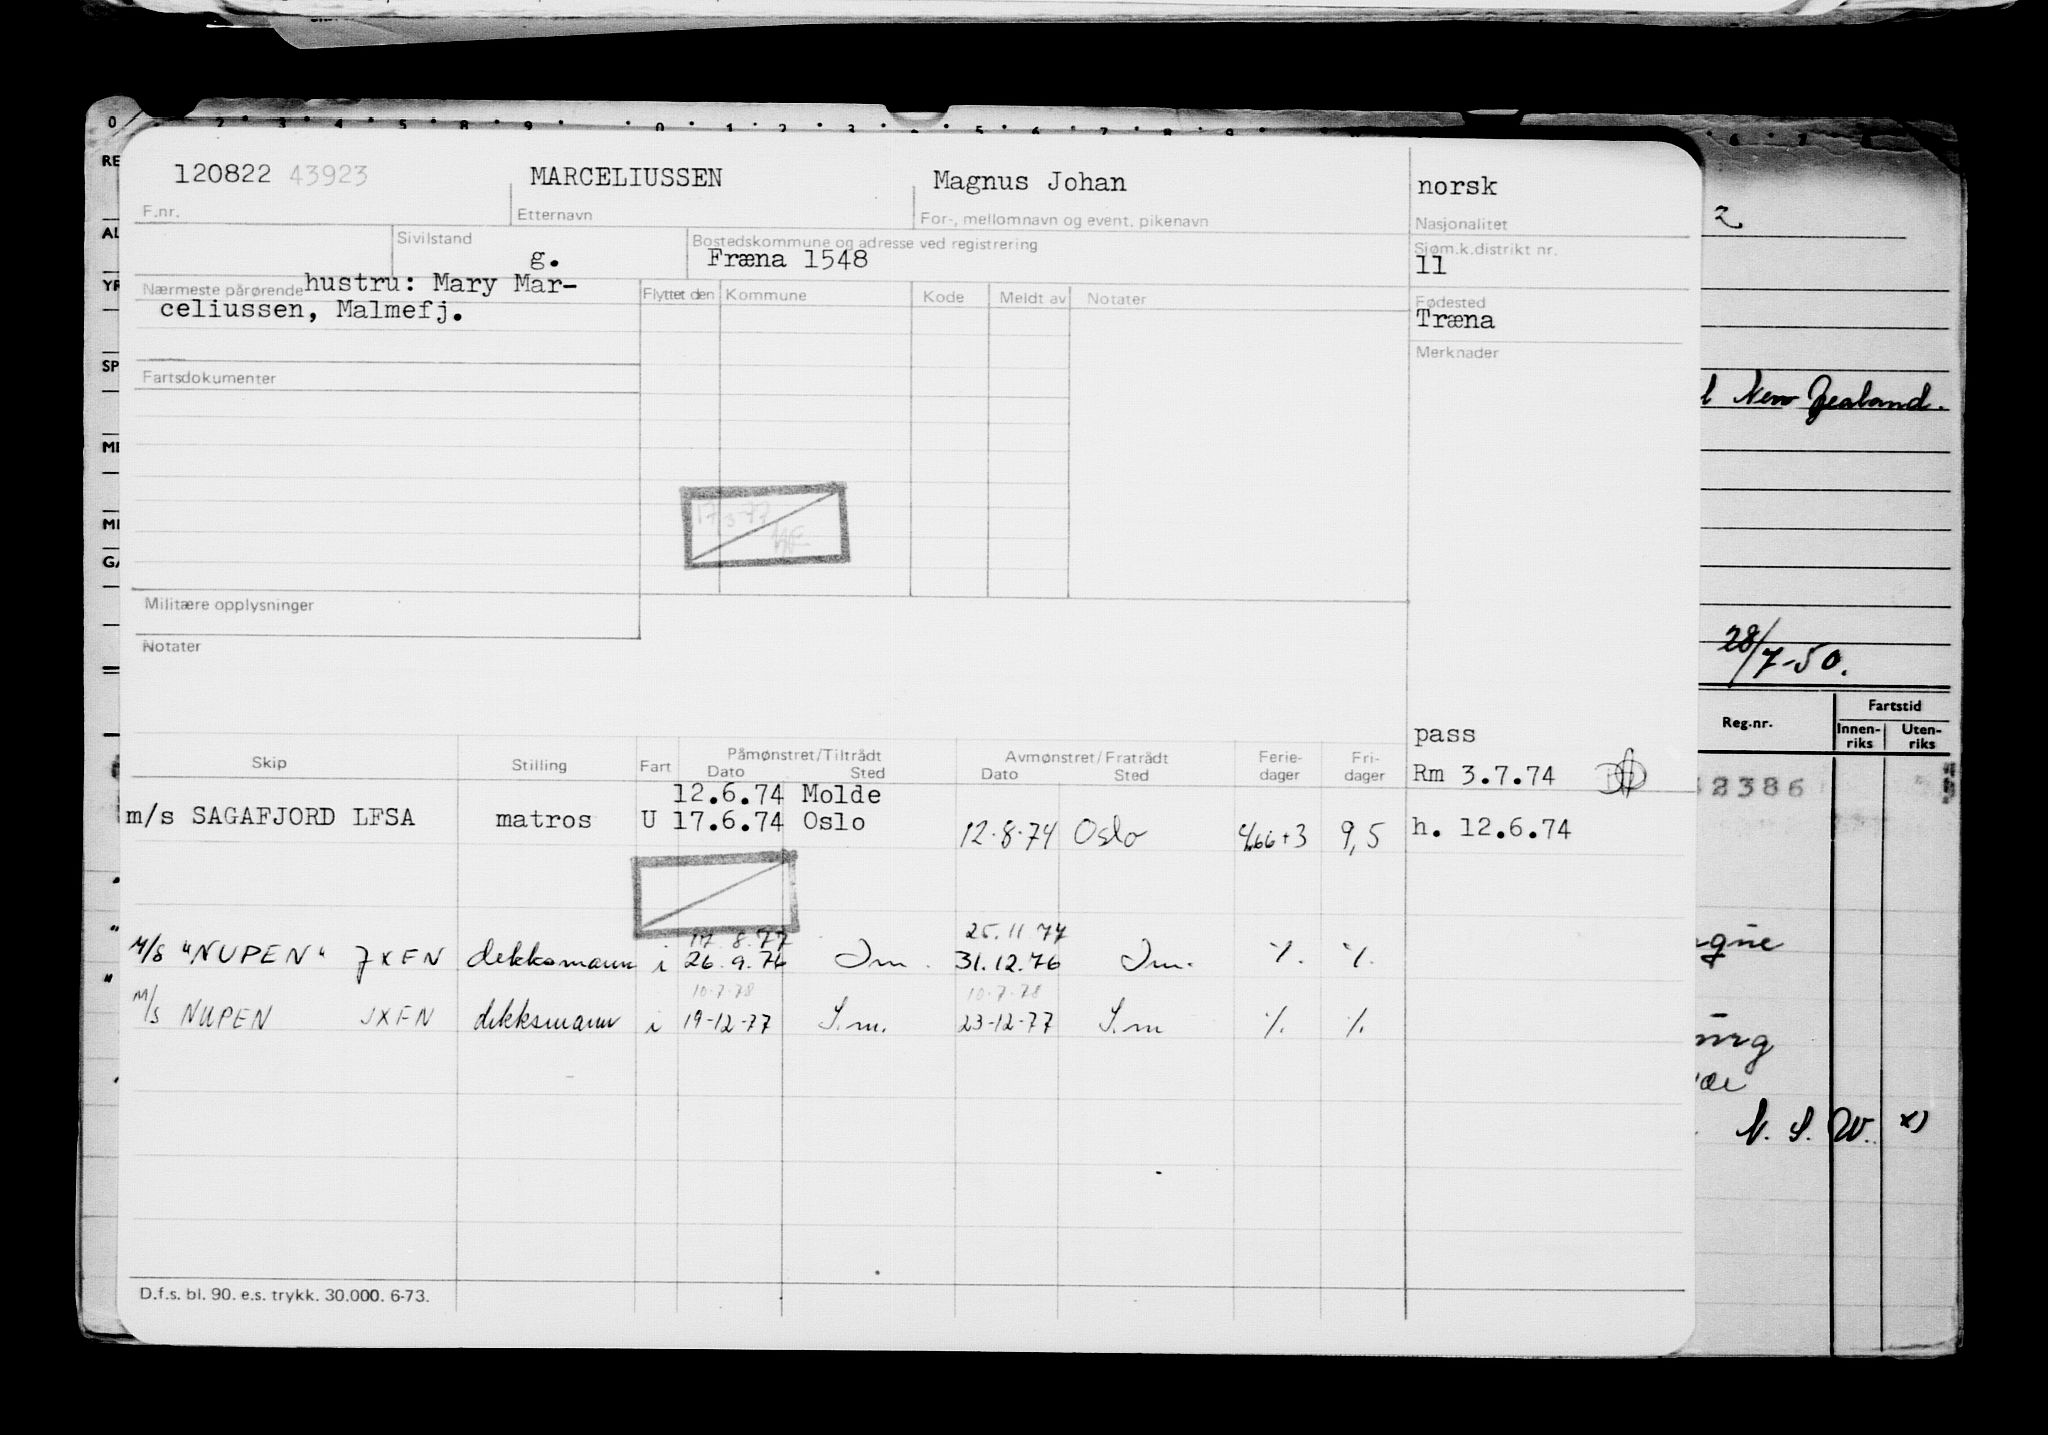 120822 43923 MARCELIUSSEN Magnus Johan norsk
F.nr. Etternavn For-, mellomnavn og event. pikenavn Nasjonalitet
Sivilstand Bostedskommune og adresse ved registrering Sjøm.k.distrikt nr.
g. Fræna 1548 11
Nærmeste pårørende hustru: Mary Mar- Flyttet den Kommune Kode Meldt av Notater Fødested
celiussen, Malmefj. Træna
Merknader
Fartsdokumenter
Militære opplysninger
Notater
pass
Skip Stilling Fart Påmønstret/Tiltrådt Avmønstret/Fratrådt Ferie- Fri-
Dato Sted Dato Sted dager dager Rm 3.7.74
12.6.74 Molde
m/s SAGAFJORD LFSA matros U 17.6.74 Oslo 12.8.74 Oslo 4,66+3 9,5 h. 12.6.74
17.8.77 25.11.77
M/s "NUPEN" JXEN dekksmann i 26.9.76 Sm. 31.12.76 Sm. % %
10-7-78 10-7-78
M/s NUPEN JXFN dekksmann i 19-12-77 S.m. 23-12-77 S.m % %
D.f.s. bl. 90. e.s. trykk. 30.000. 6-73.
2
New Zealand.
28/7-50.
Reg.nr. Fartstid
Innen-riks Uten-riks
2386
N. S. W. x)